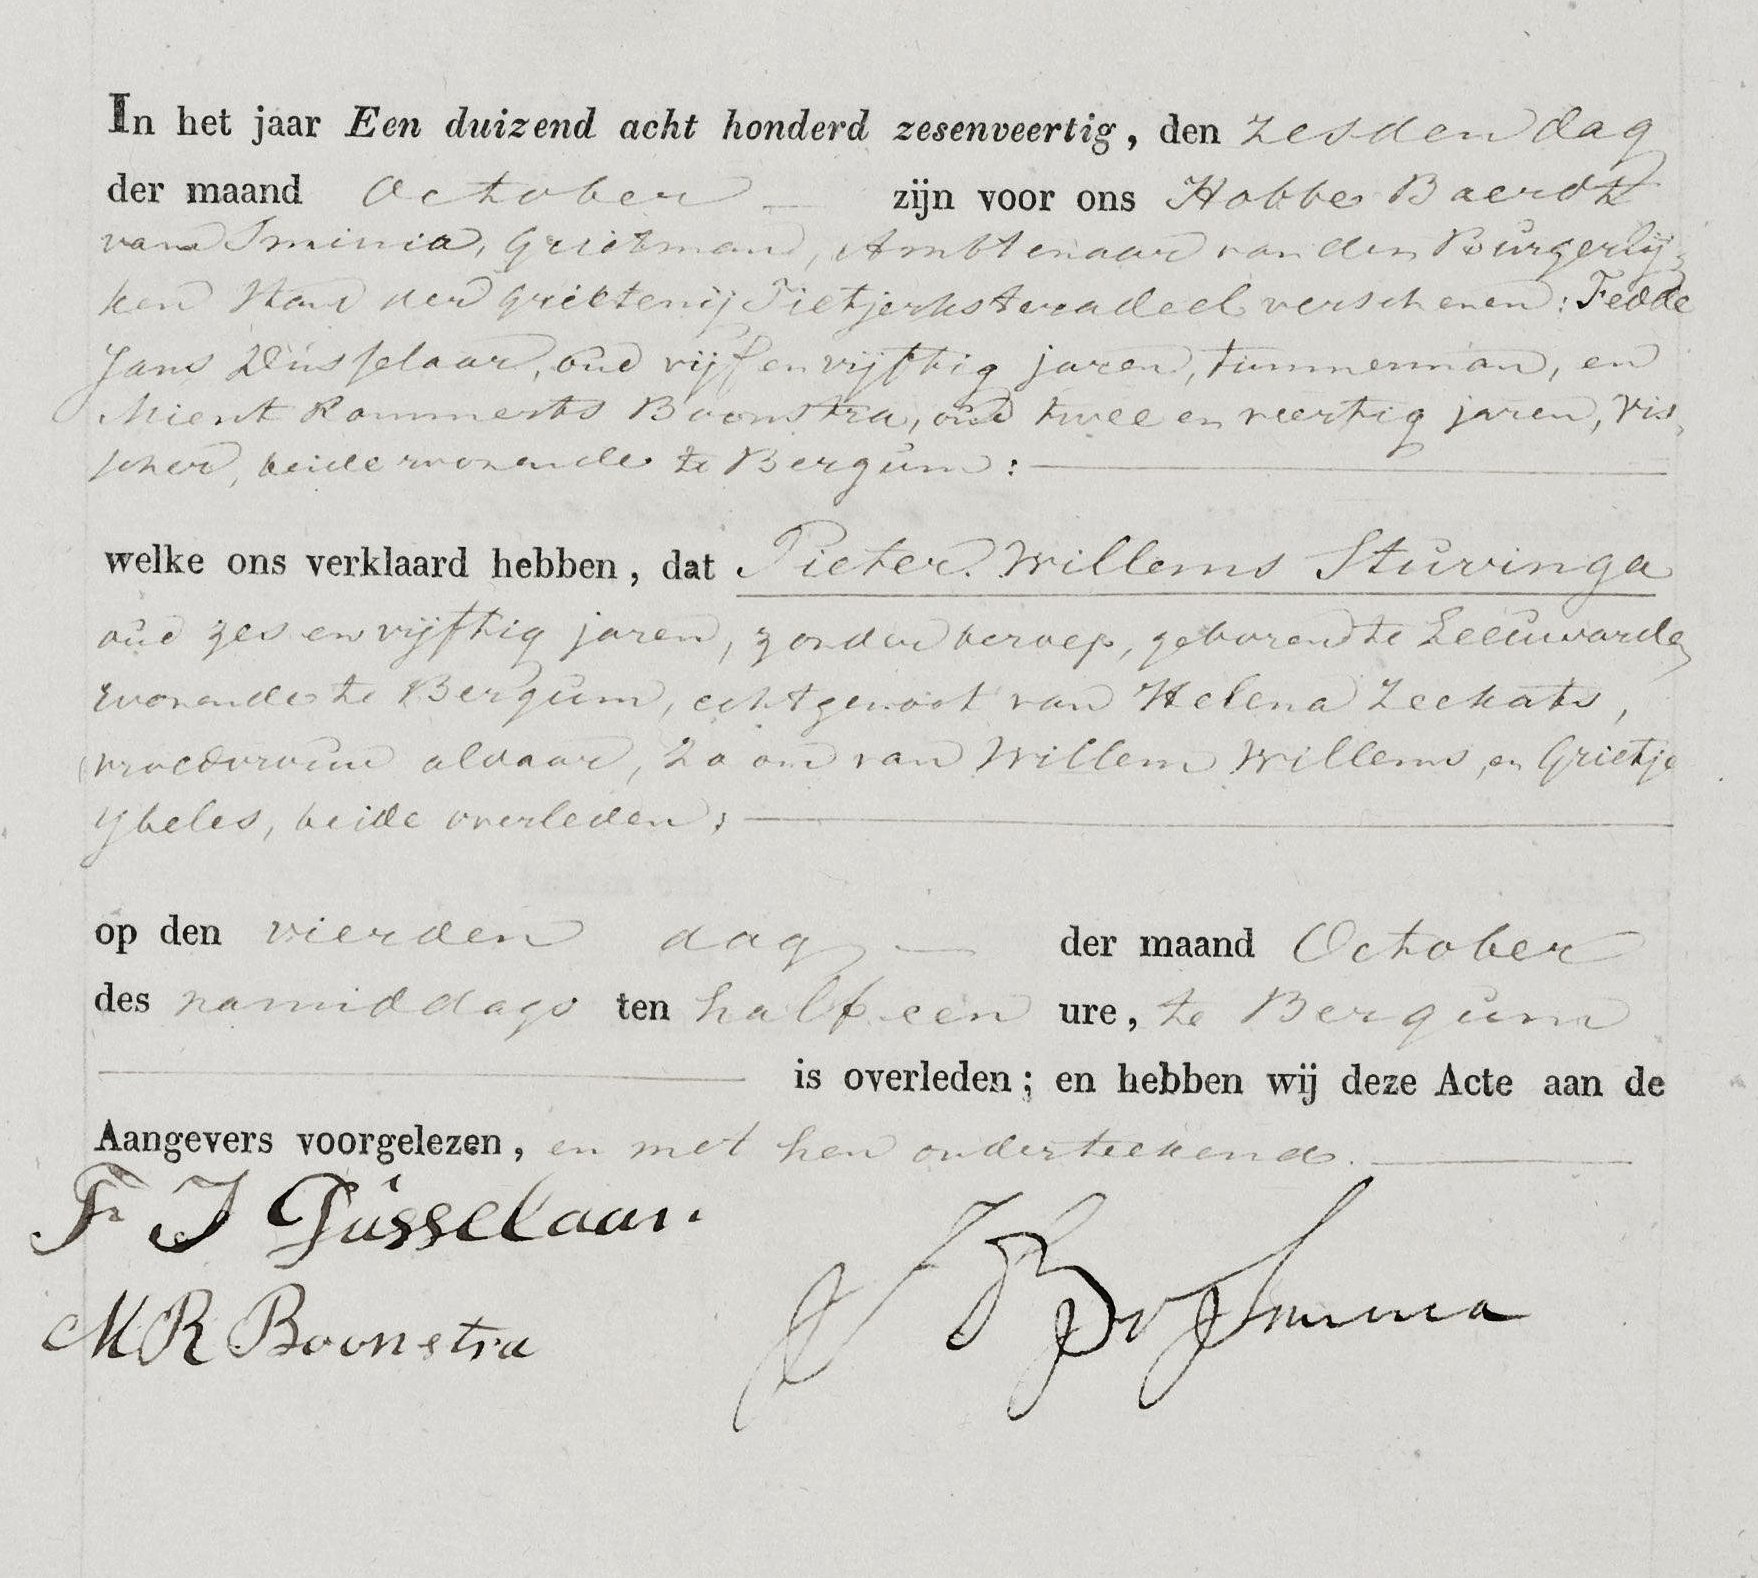 In het jaar Een duizend acht honderd zesenveertig, den zesden dag
der maand October – zijn voor ons Hobbe Baerdt
van Sminia, Grietman, Ambtenaar van den Burgerlij-
ken Stand der Grietenij Tietjerksteradeel verschenen: Fedde
Jans Dusselaar, oud vijf en vijftig jaren, timmerman, en
Mient Rommerts Boonstra, oud twee en veertig jaren, vis-
scher, beide wonende te Bergum:
welke ons verklaard hebben, dat Pieter Willems Stuvinga
oud zes en vijftig jaren, zonder beroep, geboren te Leeuwarden
wonende te Bergum, echtgenoot van Helena Zeekats,
vroedvrouw aldaar, Zoon van Willem Willems, en Grietje
Ybeles, beide overleden;
op den vierden dag – der maand October
des namiddags ten half een ure, te Bergum
is overleden; en hebben wij deze Acte aan de
Aangevers voorgelezen, en met hen onderteekend.
F J Dusselaar.
M R Boonstra